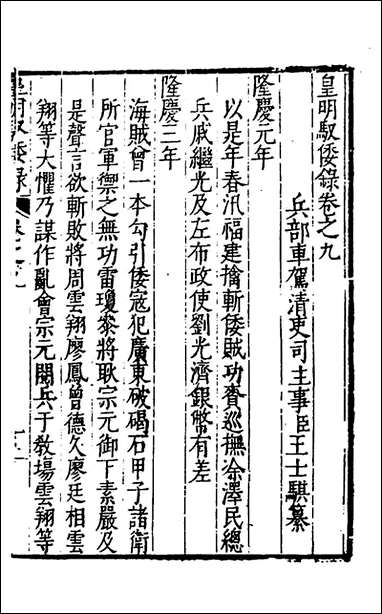 皇明馭倭錄卷之九
兵部車駕清吏司主事臣王士騏纂
隆慶元年
以是年春汛福建擒斬倭賊功賚巡撫涂澤民總
兵戚繼光及左布政使劉光濟銀幣有差
隆慶三年
海賊曾一本勾引倭寇犯廣東破碣石甲子諸衛
所官軍禦之無功雷瓊叅將耿宗元御下素嚴及
是聲言欲斬敗將周雲翔廖鳳曾德久廖廷相雲
翔等大懼乃謀作亂會宗元閱兵于教場雲翔等
皇明馭倭錄 卷之九